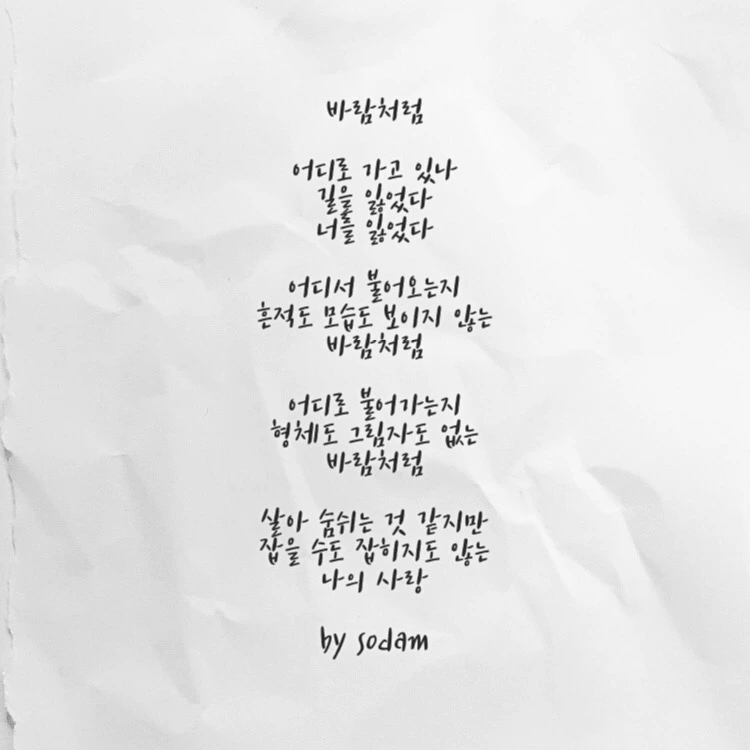 바람처럼
어디로 가고 있나
길을 잃었다
너를 잃었다
어디서 불어오는지
흔적도 모습도 보이지 않는
바람처럼
어디로 불어가는지
형체도 그림자도 없는
바람처럼
살아 숨쉬는 것 같지만
잡을 수도 잡히지도 않는
나의 사랑
by sodam